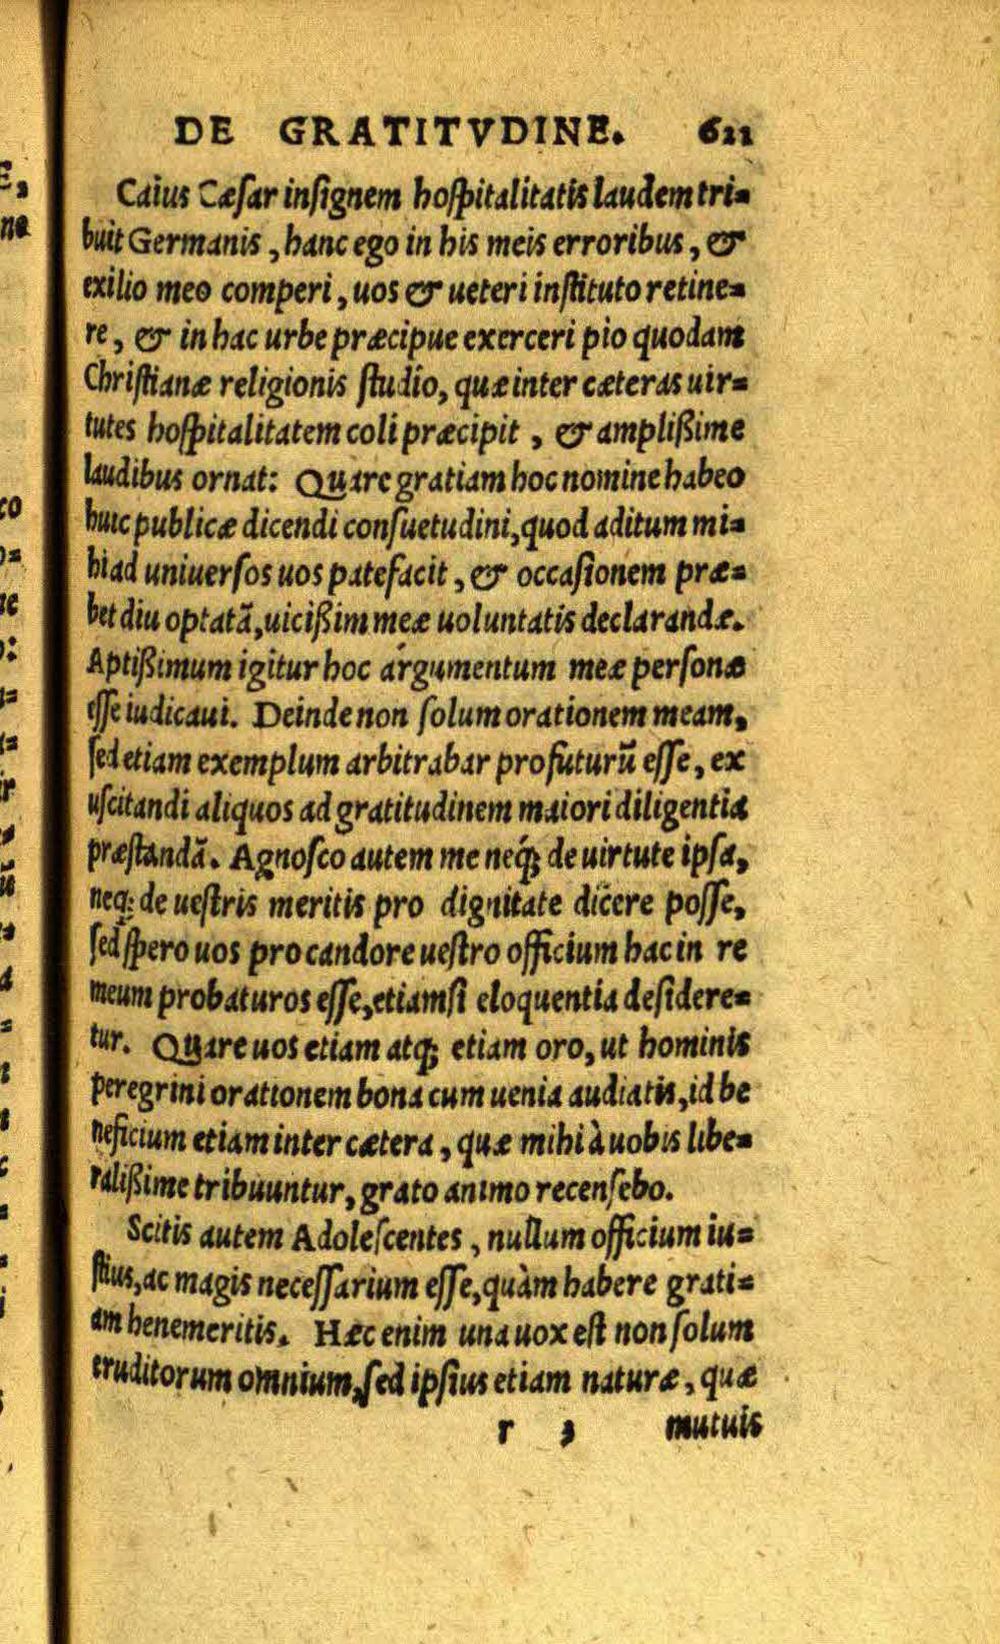 DE GRATITVDINE. 611
Caius Cæſar inſignem hoſpitalitatis laudem tri-
buit Germanis, hanc ego in his meis erroribus, &
exilio meo comperi, uos & ueteri inſtituto retine-
re, & in hac urbe præcipue exerceri pio quodam
Chriſtianæ religionis ſtudio, quæ inter cæteras uir-
tutes hoſpitalitatem coli præcipit, & ampliſsime
laudibus ornat: Quare gratiam hoc nomine habeo
huic publicæ dicendi conſuetudini, quod aditum mi-
hi ad uniuerſos uos patefacit, & occaſionem præ-
bet diu optatã, uiciſsim meæ uoluntatis declarandæ.
Aptiſsimum igitur hoc argumentum meæ perſonæ
eſſe iudicaui. Deinde non ſolum orationem meam,
ſed etiam exemplum arbitrabar profuturũ eſſe, ex
uſcitandi aliquos ad gratitudinem maiori diligentia
præſtandã. Agnoſco autem me neq́; de uirtute ipſa,
neq; de ueſtris meritis pro dignitate dicere poſſe,
ſed ſpero uos pro candore ueſtro officium hac in re
meum probaturos eſſe, etiamſi eloquentia deſidere-
tur. Quare uos etiam atq; etiam oro, ut hominis
peregrini orationem bona cum uenia audiatis, id be
neficium etiam inter cætera, quæ mihi à uobis libe-
raliſsime tribuuntur, grato animo recenſebo.
Scitis autem Adoleſcentes, nullum officium iu-
ſtius, ac magis neceſſarium eſſe, quàm habere grati-
am benemeritis. Hæc enim una uox eſt non ſolum
eruditorum omnium, ſed ipſius etiam naturæ, quæ
r 3 mutuis